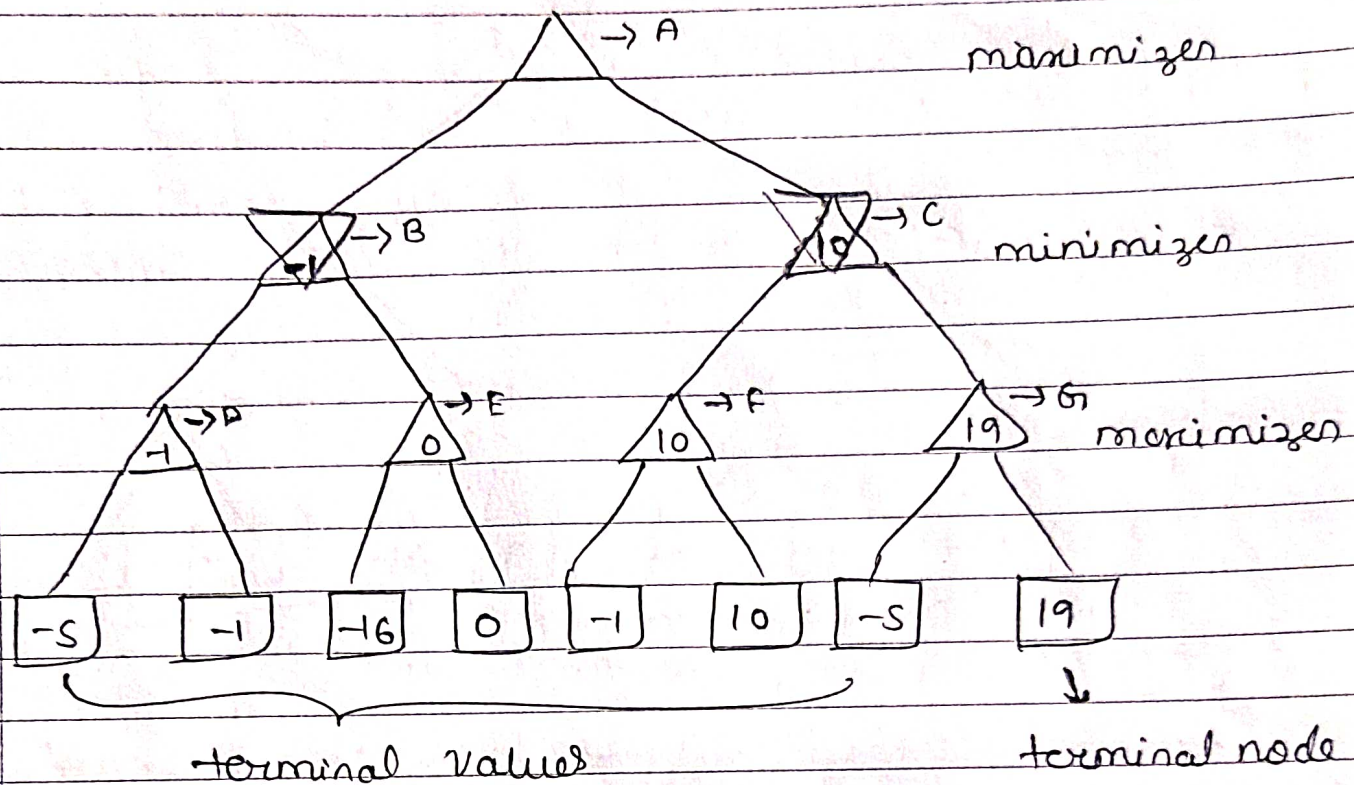 → A maximizer
-1 → B 10 → C minimizer
-1 → D 0 → E 10 → F 19 → G maximizer
-5 -1 -16 0 -1 10 -5 19
terminal values terminal node